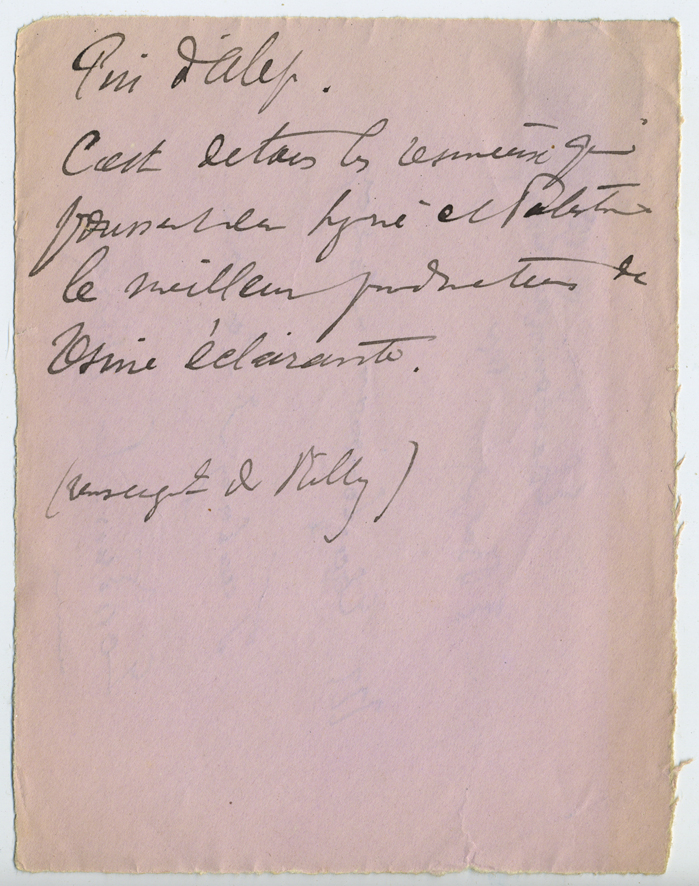 Pin d'Alep.
C'est de tous les résineux qui
poussent en Syrie et Palestine
le meilleur producteur de
résine éclairante.
(renseignt de Milly)